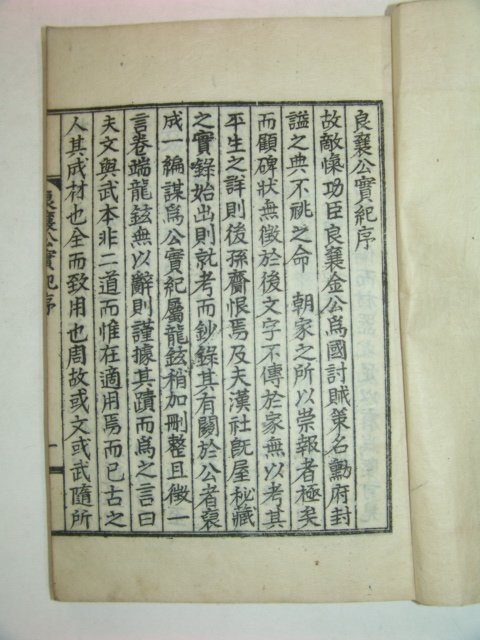 良襄公實紀序
故敵愾功臣良襄金公爲國討賊策名勳府封
謚之典不祧之命 朝家之所以崇報者極矣
而顧碑狀無徵於後文字不傳於家無以考其
平生之詳則後孫齎恨焉及夫漢社旣屋秘藏
之實錄始出則就考而鈔錄其有關於公者裒
成一編謀爲公實紀屬龍鉉稍加刪整且徵一
言卷端龍鉉無以辭則謹據其蹟而爲之言曰
夫文與武本非二道而惟在適用焉而已古之
人其成材也全而致用也周故或文或武隨所
良襄公實紀序
一